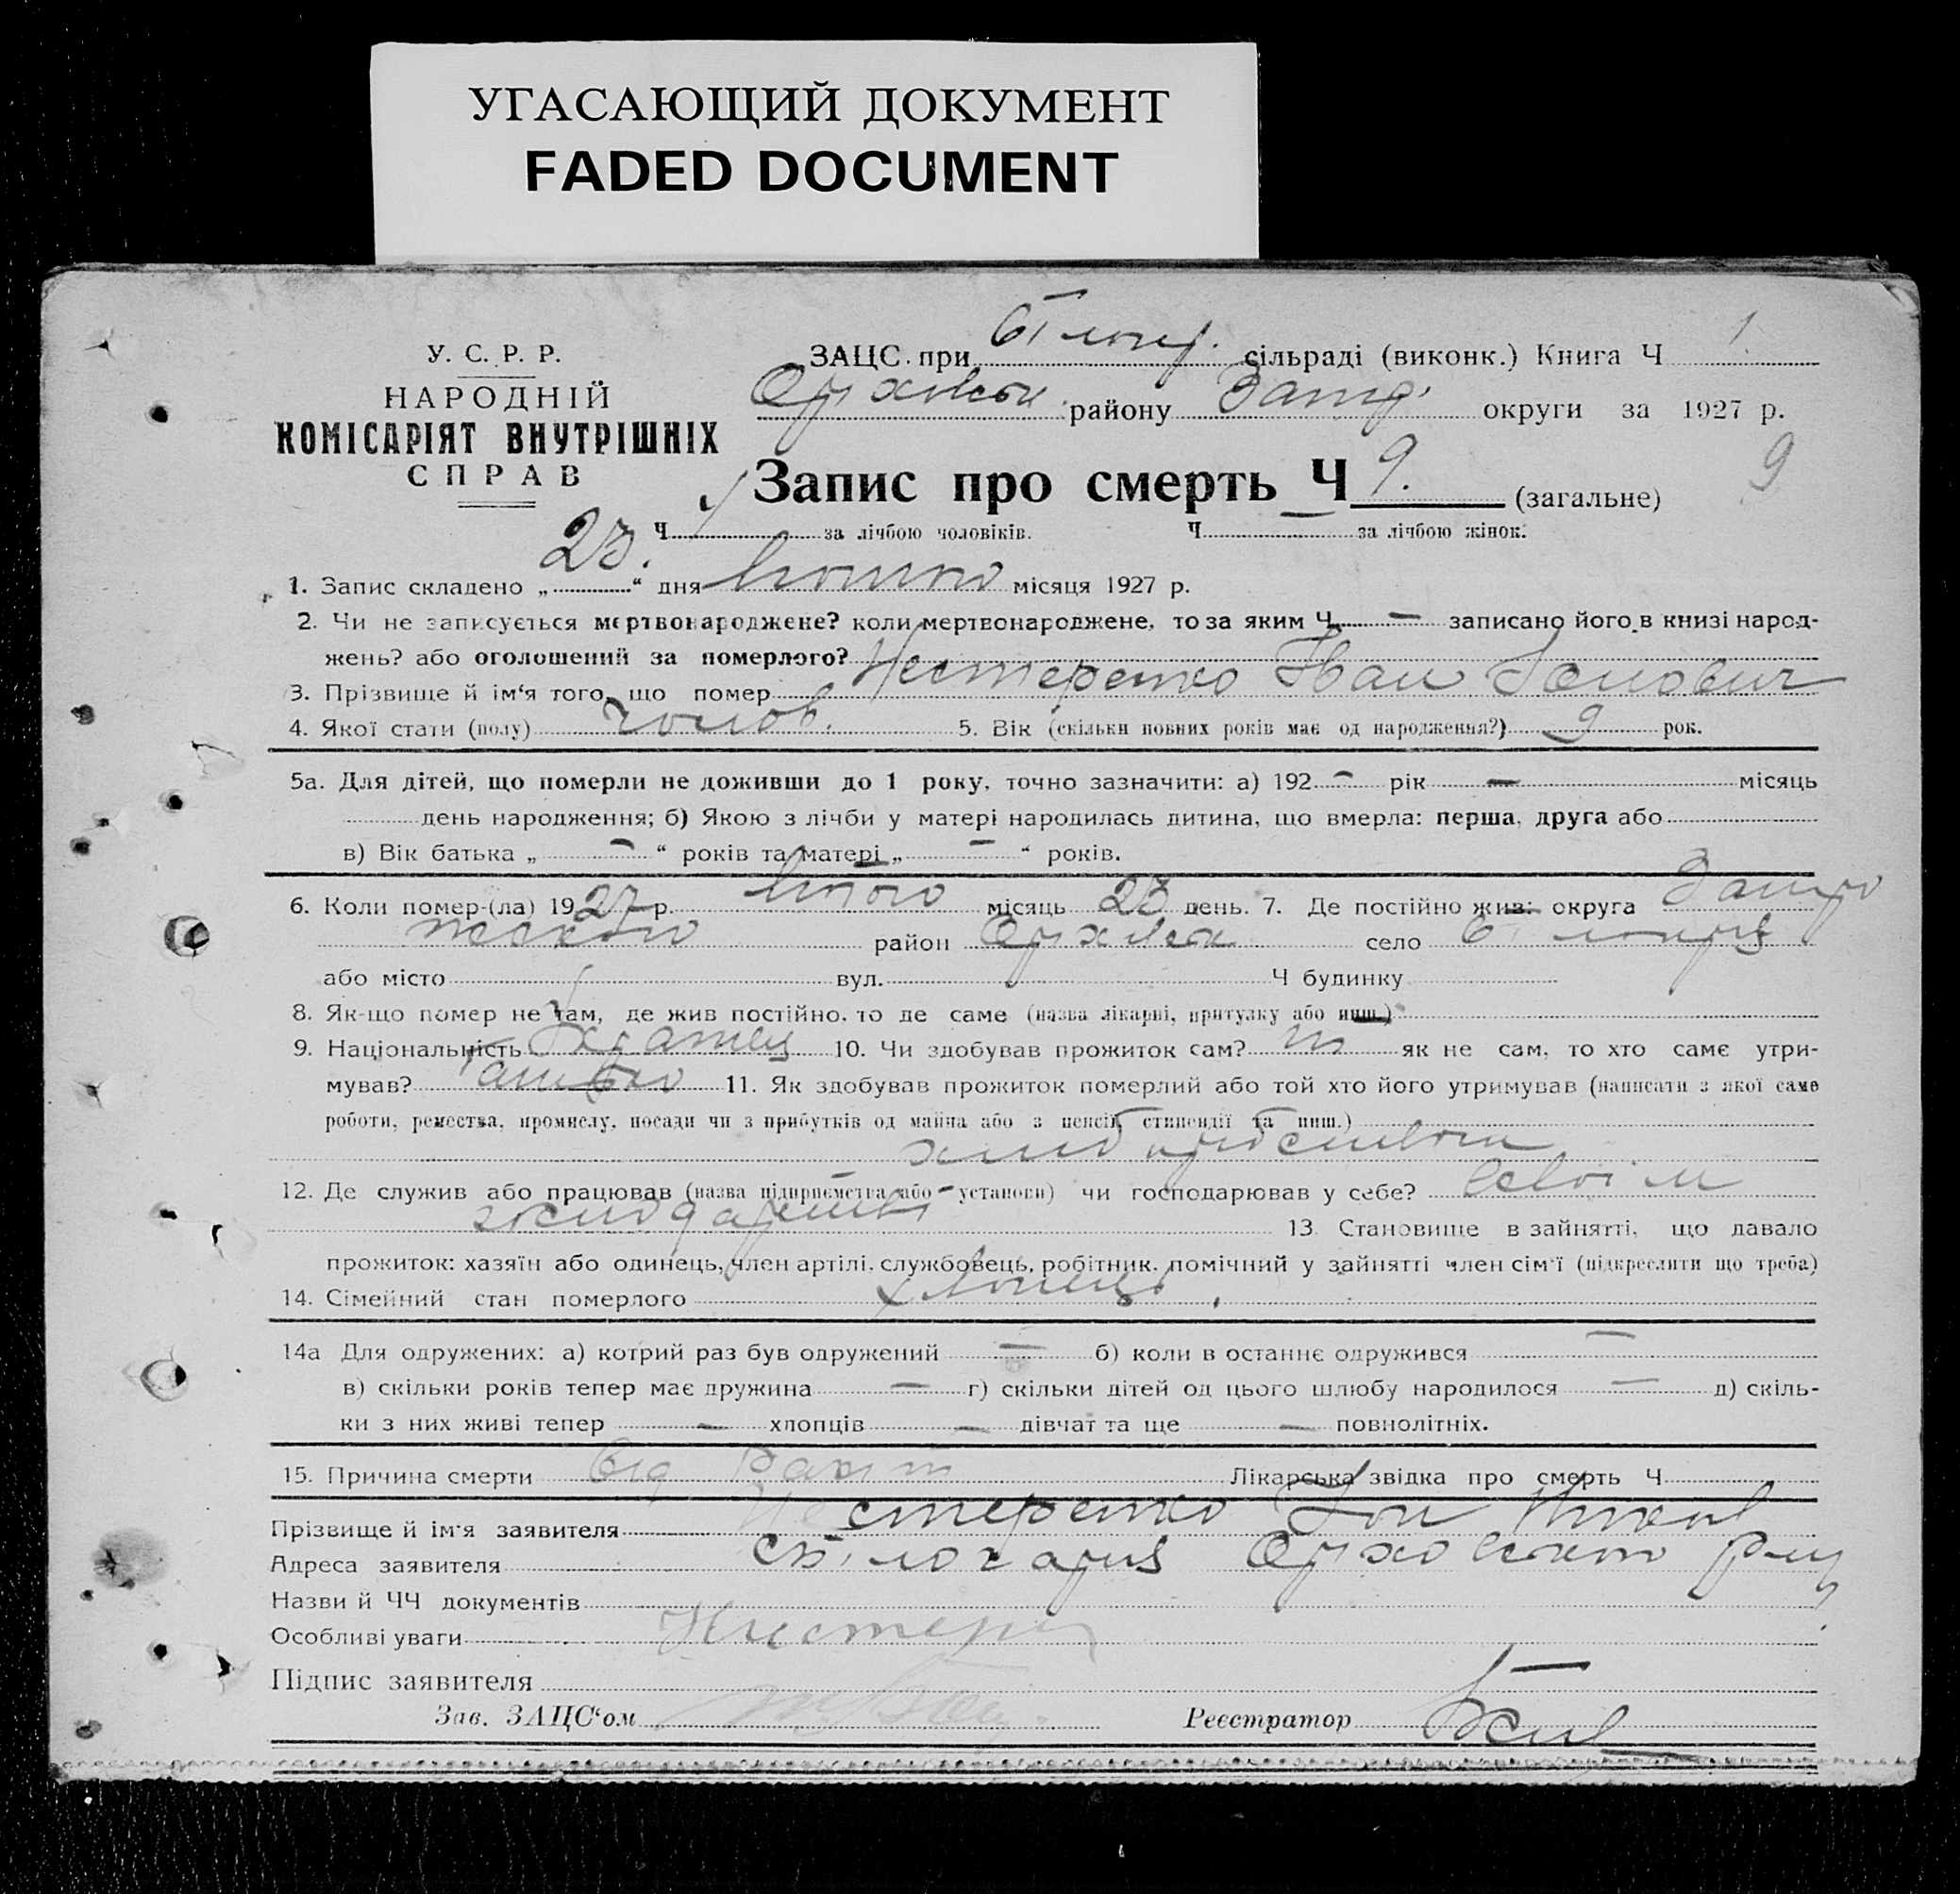 УГАСАЮЩИЙ ДОКУМЕНТ
FADED DOCUMENT
У. С. Р. Р.
НАРОДНІЙ
КОМІСАРІЯТ ВНУТРІШНІХ
СПРАВ
ЗАЦС при сільраді (виконк.) Книга Ч 1
району округи за 1927 р.
Запис про смерть Ч 9. (загальне) 9
Ч за лічбою чоловіків. Ч — за лічбою жінок.
1. Запис складено „ 23. “ дня лютого місяця 1927 р.
2. Чи не записується мертвонароджене? коли мертвонароджене, то за яким Ч — записано його в книзі народ-
жень? або оголошений за померлого?
3. Прізвище й ім‘я того, що помер Нестеренко Іван Іонович
4. Якої стати (полу) чолов. 5. Вік (скільки повних років має од народження?) 9 рок.
5а. Для дітей, що померли не доживши до 1 року, точно зазначити: а) 192 — рік — місяць
день народження; б) Якою з лічби у матері народилась дитина, що вмерла: перша, друга або
в) Вік батька „ — “ років та матері „ — “ років.
6. Коли помер-(ла) 1927 р. лютого місяць 23 день. 7. Де постійно жив: округа Запро
район Оріхівськ село
або місто вул. Ч будинку
8. Як-що помер не там, де жив постійно, то де саме (назва лікарні, притулку або инш.)
9. Національність Українець 10. Чи здобував прожиток сам? ні як не сам, то хто саме утри-
мував? батько 11. Як здобував прожиток померлий або той хто його утримував (написати з якої саме
роботи, ремества, промислу, посади чи з прибутків од майна або з пенсії, стипендії та инш.)
хліборобством
12. Де служив або працював (назва підприємства або установи) чи господарював у себе? в своїм
господарстві 13. Становище в зайнятті, що давало
прожиток: хазяїн або одинець, член артілі, службовець, робітник, помічний у зайнятті член сім‘ї (підкреслити що треба)
14. Сімейний стан померлого хлопець
14а Для одружених: а) котрий раз був одружений — б) коли в останнє одружився —
в) скільки років тепер має дружина — г) скільки дітей од цього шлюбу народилося — д) скіль-
ки з них живі тепер — хлопців — дівчат та ще — повнолітніх.
15. Причина смерти від Лікарська звідка про смерть Ч
Прізвище й ім‘я заявителя Нестеренко Іон
Адреса заявителя
Назви й ЧЧ документів
Особливі уваги
Підпис заявителя
Зав. ЗАЦС‘ом Реєстратор